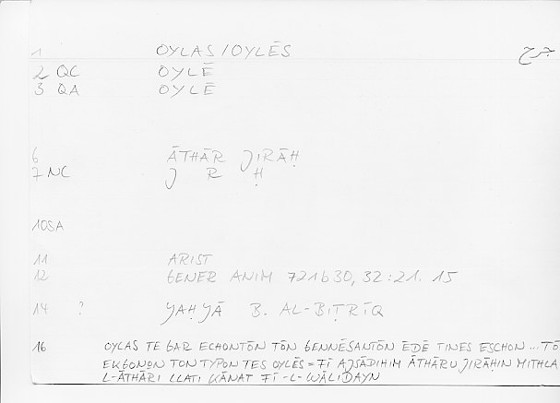 1 OYLAS/OYLĒS جرح
2 QC OYLĒ
3 QA OYLĒ
6 ĀTHĀR JIRĀḤ
7 NC J R Ḥ
10SA
11 ARIST
12 GENER ANIM 721b30, 32:21. 15
14 ? YAḤYĀ B. AL-BIṬRĪQ
16 OYLAS TE GAR ECHONTŌN TŌN GENNĒSANTŌN ĒDĒ TINES ESCHON ... TŌ
EKGONŌN TON TYPON TES OYLĒS = FĪ AJSĀDIHIM ĀTHĀRU JIRĀHIN MITHLA
L-ĀTHĀRI LLATI KĀNAT FĪ-L-WĀLIDAYN